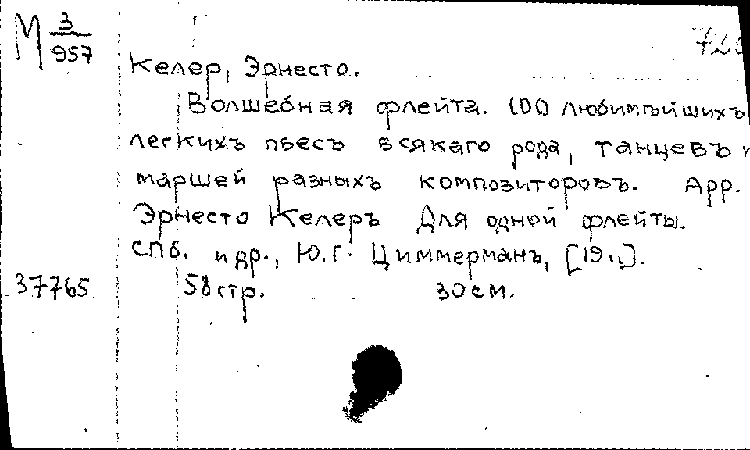 М 3/957
Келер, Эрнесто.
Волшебная флейта. 100 любимѣйшихъ
легкихъ пьесъ всякаго рода, танцевъ и
маршей разныхъ композиторовъ. Арр.
Эрнесто Келеръ Для одной флейты.
СПб. и др., Ю.Г. Циммерманъ, [19..].
37765 58 стр. 30 см.